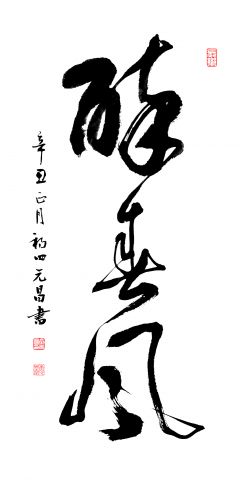 醉春风
辛丑正月初四元昌書